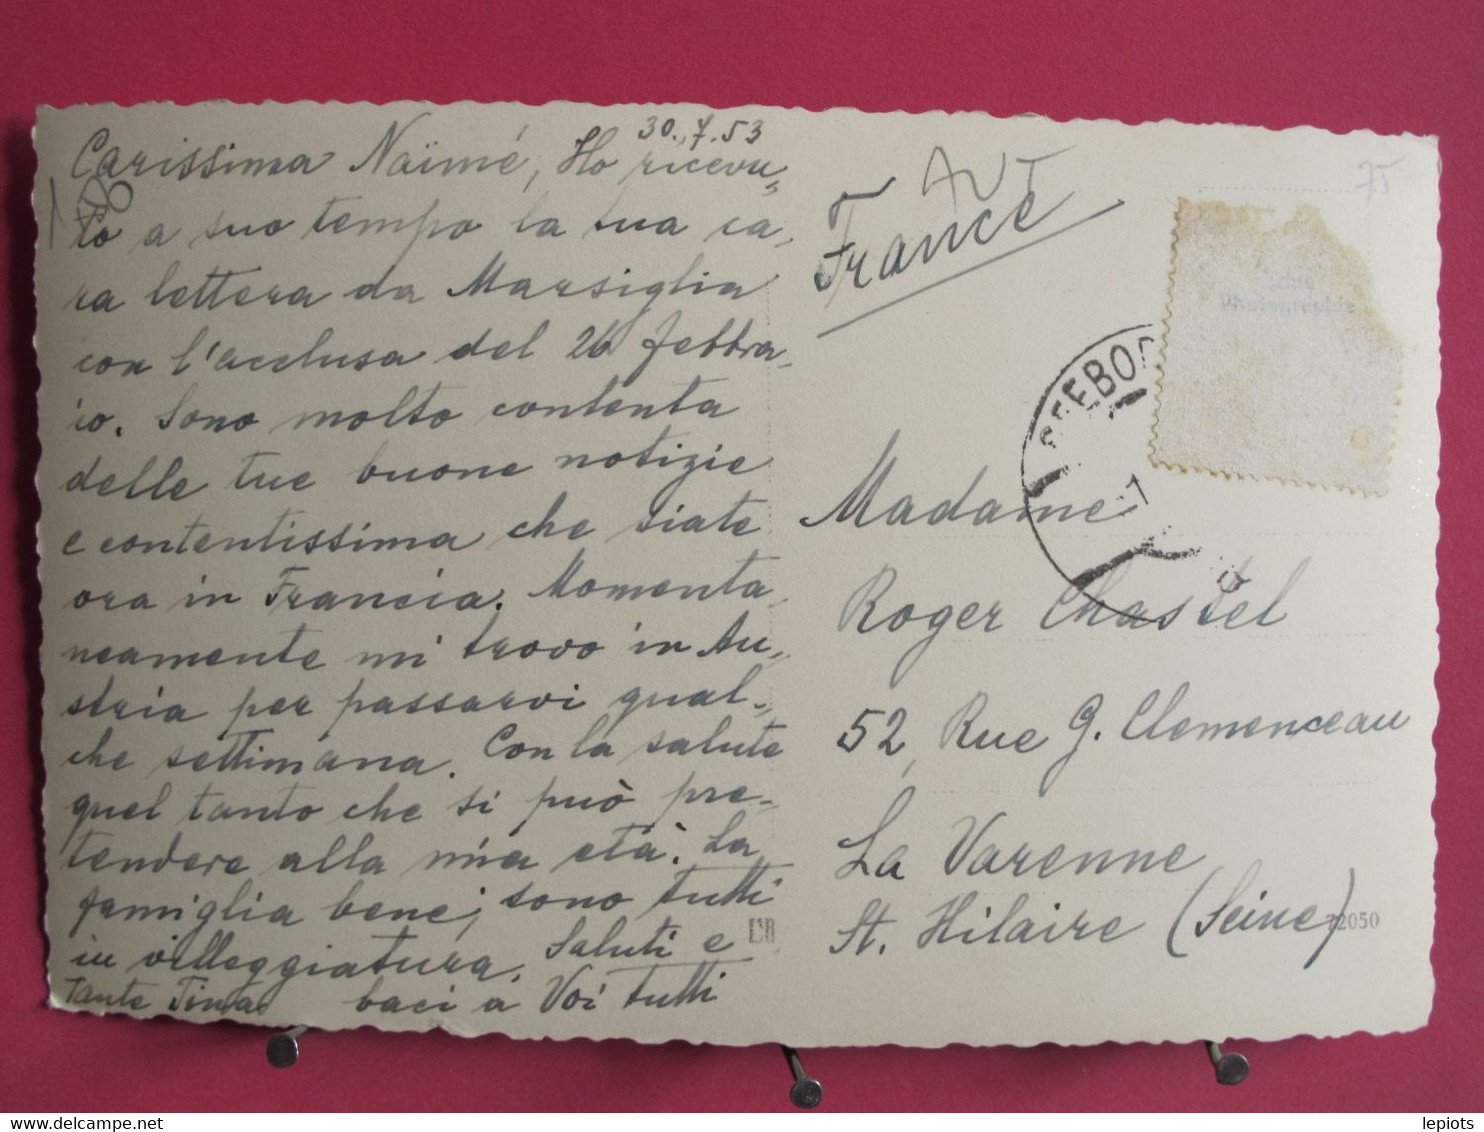 30.,7.53
Carissima Naïmé, Ho ricevu„
to a suo tempo la tua ca„
ra lettera da Marsiglia
con l'acclusa del 26 febbra„
io. Sono molto contenta
delle tue buone notizie
e contentissima che siate
ora in Francia. Momenta„
neamente mi trovo in Au„
stria per passarvi qual„
che settimana. Con la salute
quel tanto che si può pre„
tendere alla mia età. La
famiglia bene; sono tutti
in villeggiatura. Saluti e
Tante Tina baci a Voi tutti
AUT
75
France
Photographie
SEEBOD
Madame
Roger Chastel
52, Rue G. Clemenceau
La Varenne
St. Hilaire (Seine)
72050
lepiots